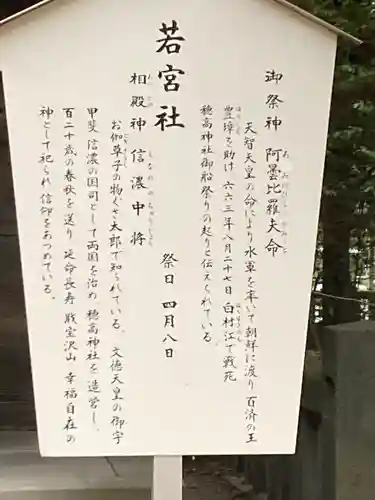 若宮社
御祭神 阿曇比羅夫命
天智天皇の命により水軍を率いて朝鮮に渡り 百済の王
豊璋を助け 六六三年八月二十七日 白村江で戦死
穂高神社御船祭りの起りと伝えられている
相殿神 信濃中将
祭日 四月八日
お伽草子の物ぐさ太郎で知られている。 文徳天皇の御宇
甲斐 信濃の国司として両国を治め 穂高神社を造営し、
百二十歳の春秋を送り 延命長寿 財宝沢山 幸福自在の
神として祀られ 信仰をあつめている。